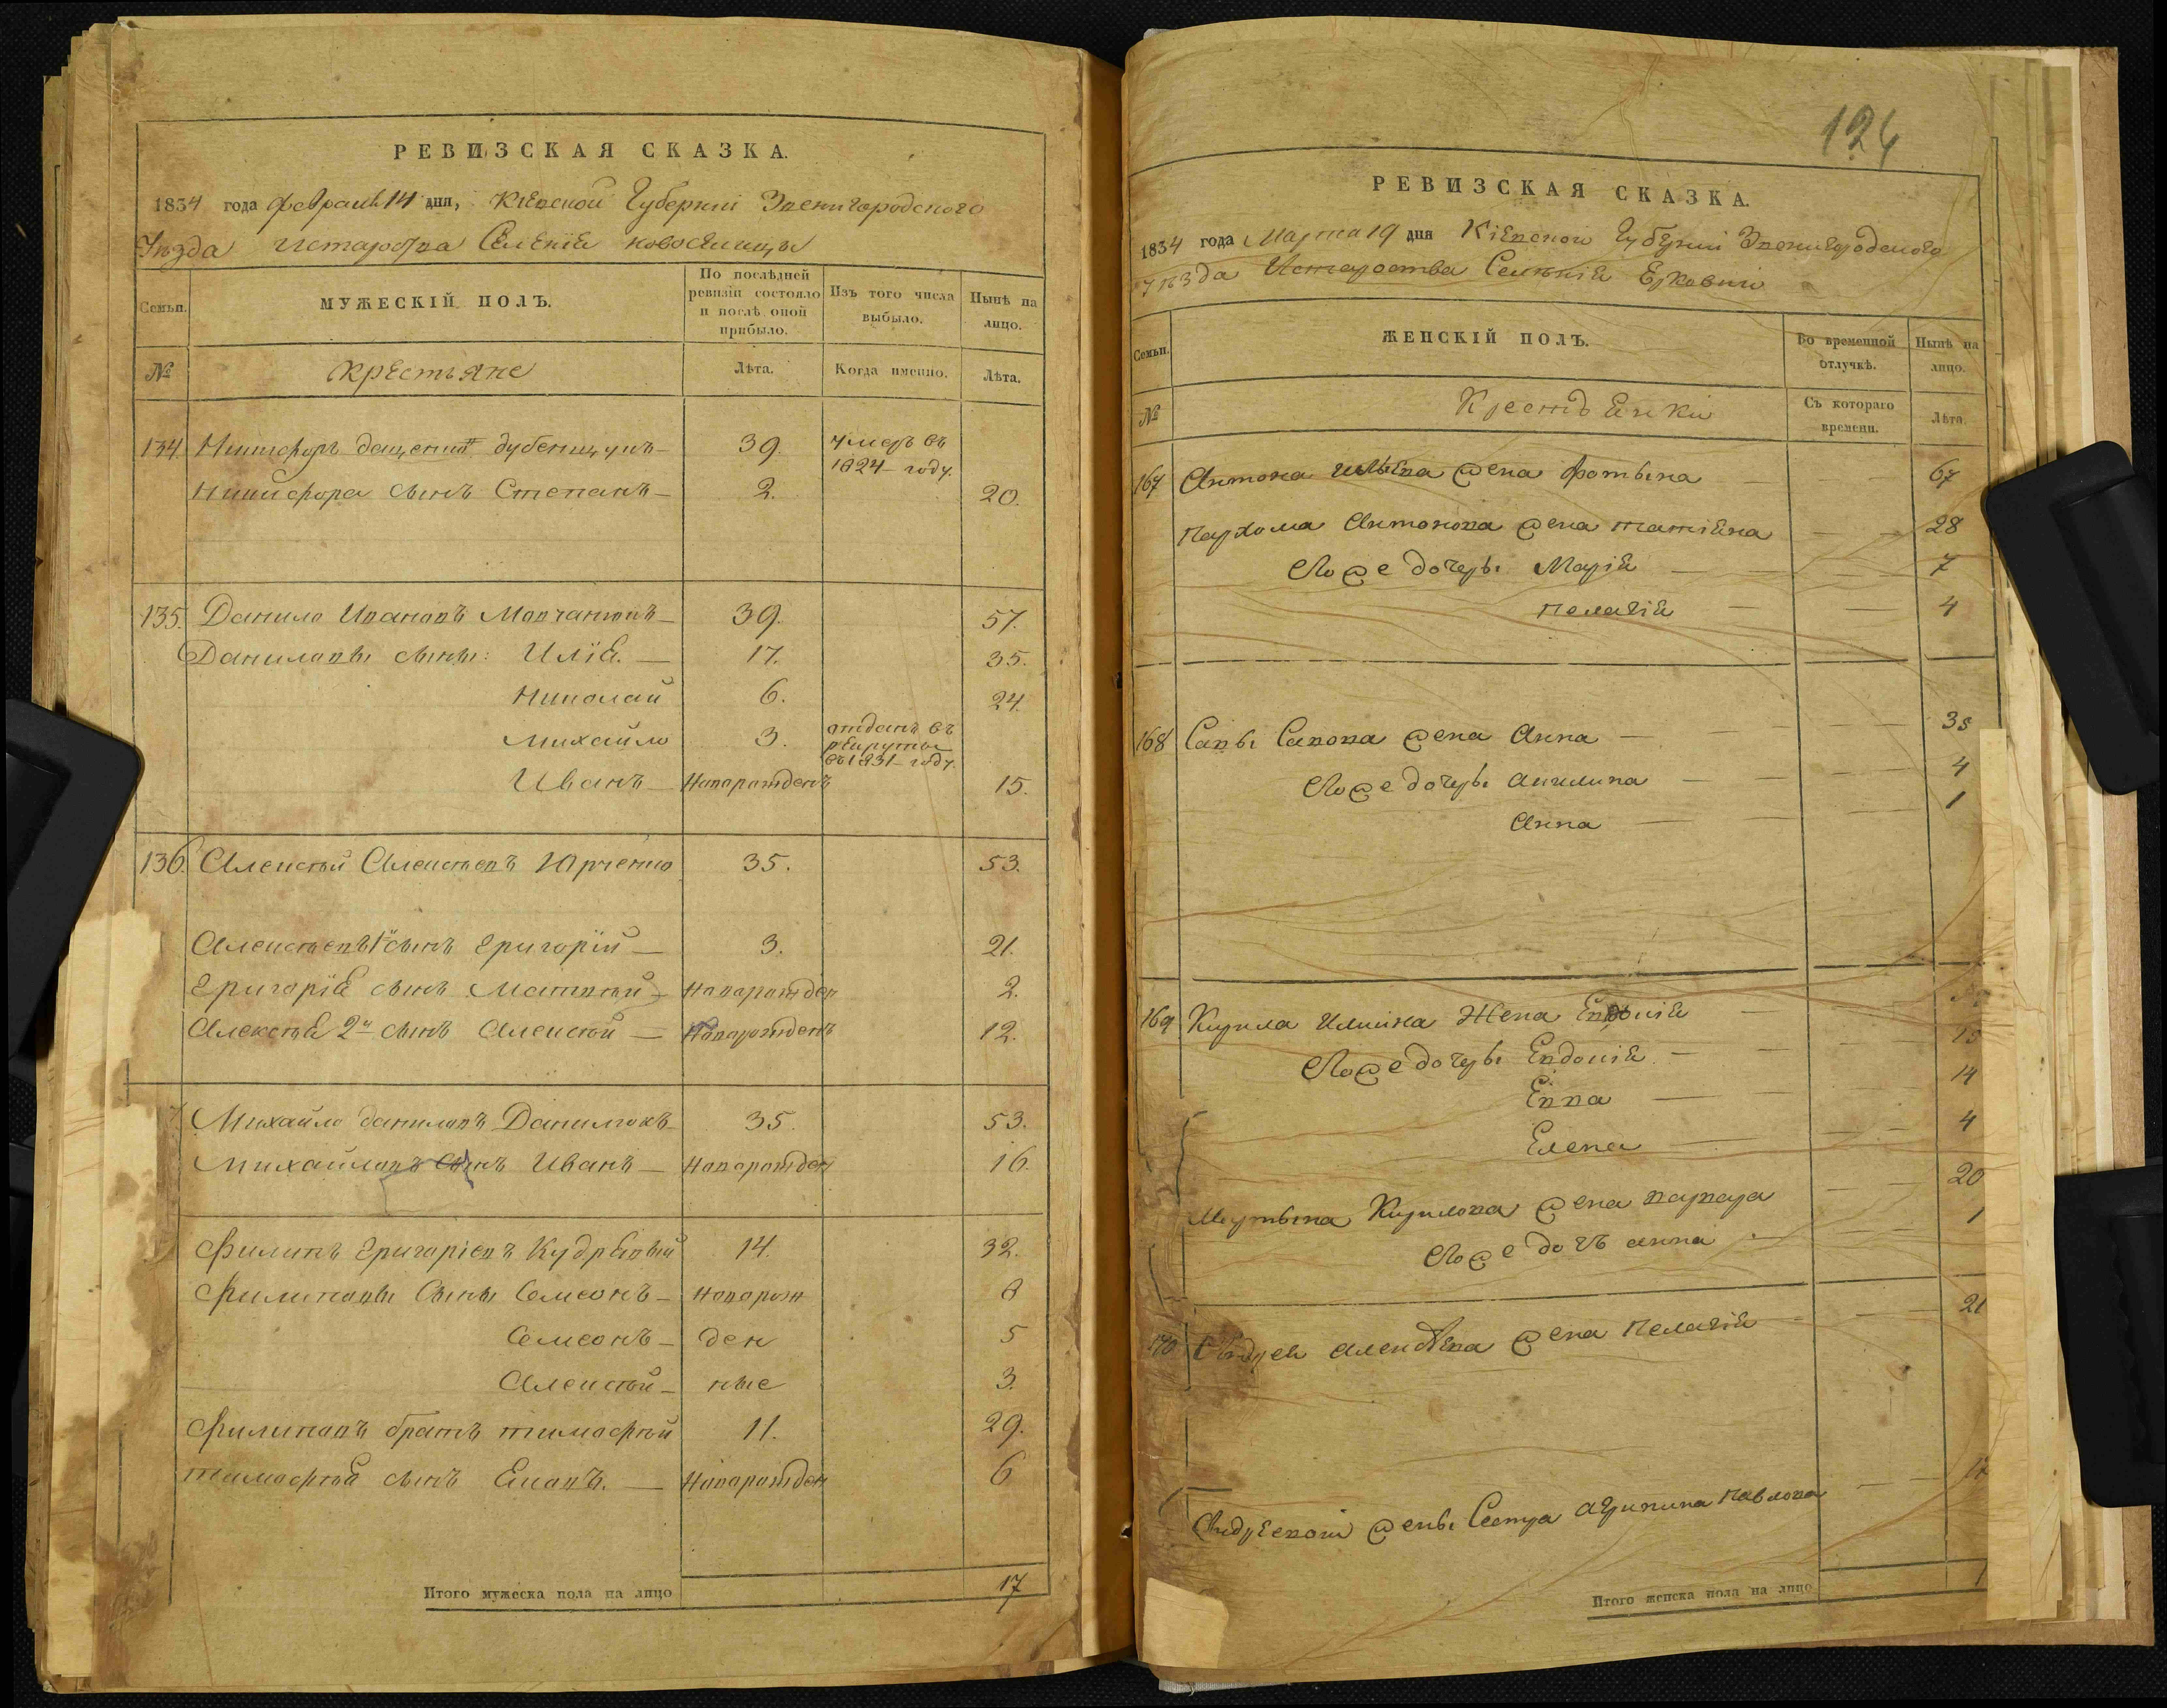 РЕВИЗСКАЯ СКАЗКА.
1834 года февраля 14 дня, Кіевской Губерніи Звенигородского
Уѣзда истароства Селеніе новоселицы
Семьи.
МУЖЕСКІЙ ПОЛЪ.
По послѣдней ревизіи состояло и послѣ оной прибыло.
Изъ того числа выбыло.
Нынѣ на лицо.
№
крестьяне
Лѣта.
Когда именно.
Лѣта.
134. Никифоръ дубенщукъ 39. умеръ въ
1824 году.
Никифора сынъ Степанъ 2. 20.
135. Данило Ивановъ Мовчанюкъ 39. 57.
Даниловы сыны: Иліе. 17. 35.
Николай 6. 24.
Михайло 3. отданъ въ
рекруты
въ 1831 году.
Иванъ Новорожденъ 15.
136. Алексѣй Алексѣевъ Юрченко 35. 53.
Алексѣевъ 1й сынъ Григорій 3. 21.
Григоріе сынъ Матвѣй Новорожден 2.
Алексѣе 2й сынъ Алексѣй Новорожденъ 12.
Михайло данилавъ Данилюкъ 35. 53.
Михайлавъ сынъ Иванъ Новорожден 16.
Филипъ Григоріевъ Кудревый 14. 32.
Филиповы Сыны Семеонъ Новорож 8
Семеонъ ден 5
Алексѣй ные 3.
Филиповъ братъ тимофѣй 11. 29.
тимофѣе сынъ Новорожден 6
Итого мужеска пола на лицо 17
124
РЕВИЗСКАЯ СКАЗКА.
1834 года Марта 19 дня Кіевской Губерніи Звенигородского
уѣзда Истароства Селѣніе Ерковки
Семьи.
ЖЕНСКІЙ ПОЛЪ.
Во временной отлучкѣ.
Нынѣ на лицо.
№
Крестьенки
Съ котораго времени.
Лѣта.
167 Антона жена фотына 67
Пархома Антонова жена татіена 28
Его же дочеры Маріе 7
пелагіе 4
168 Савы Савова жена Анна 38
Его же дочеры Ангилина 4
Анна 1
169 Кирила Жена
Его же дочеры Евдокіе 15
Евва 14
Елена 4
Мартына Кирилова жена варвара 20
Его же дочъ анна 1
170 Андреа алексѣева жена пелагіе 21
Андреевой жены Сестра агрипина павлова
Итого женска пола на лицо